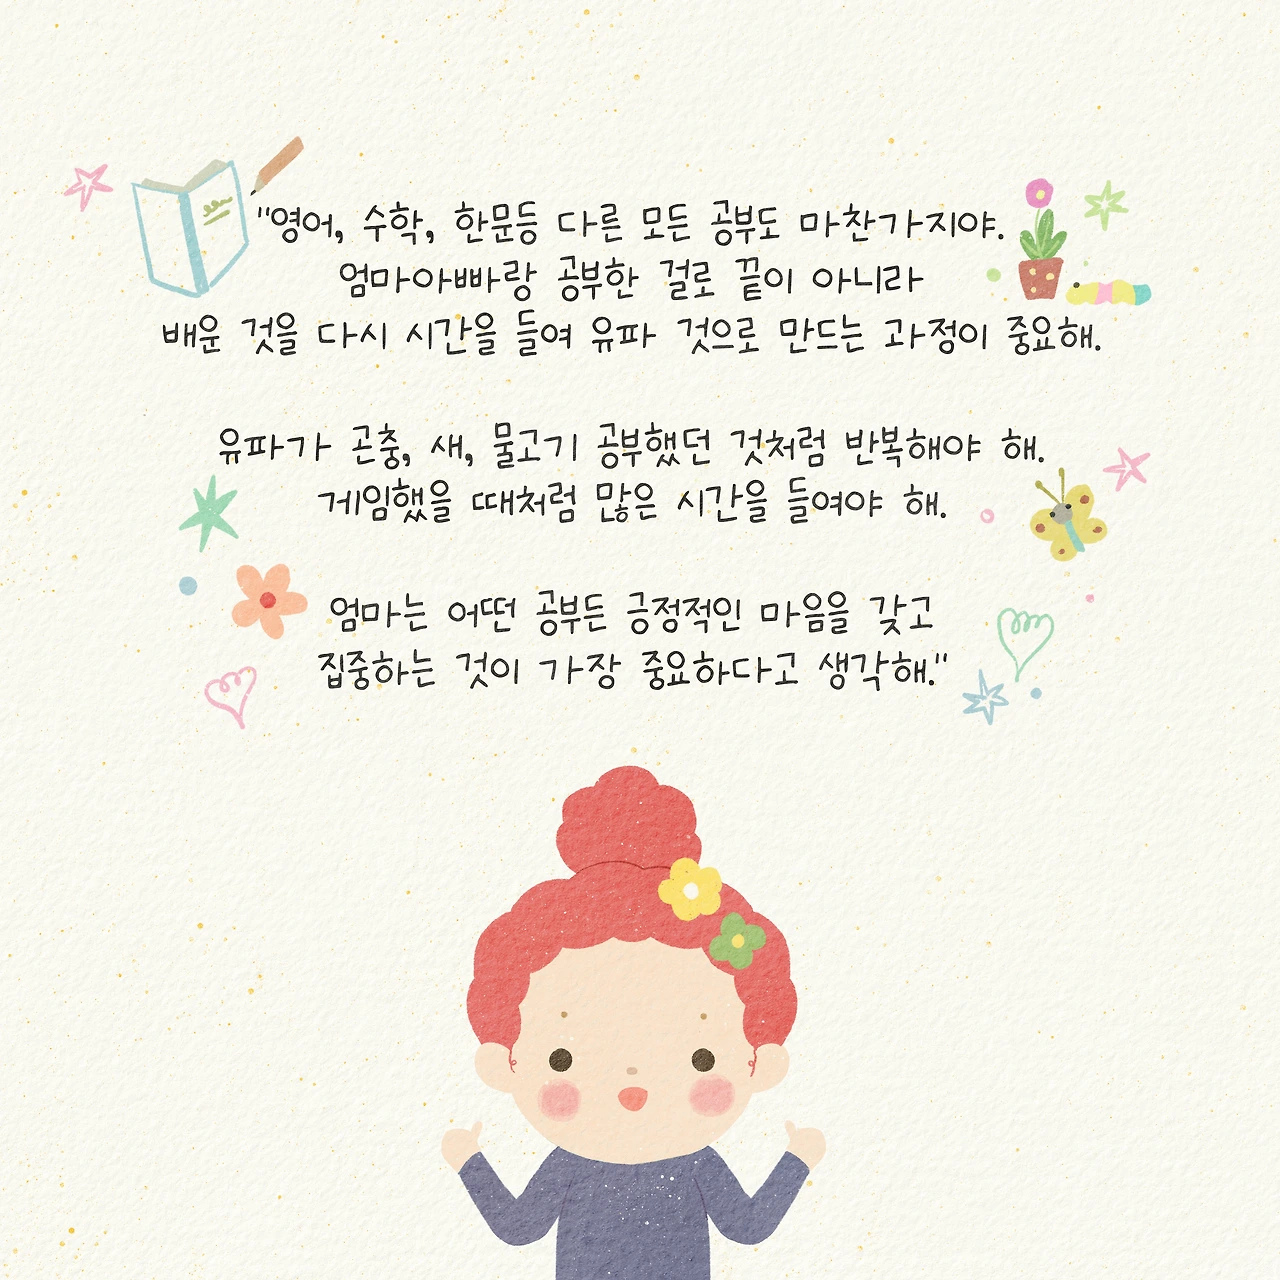 "영어, 수학, 한문등 다른 모든 공부도 마찬가지야.
엄마아빠랑 공부한 걸로 끝이 아니라
배운 것을 다시 시간을 들여 유파 것으로 만드는 과정이 중요해.
유파가 곤충, 새, 물고기 공부했던 것처럼 반복해야 해.
게임했을 때처럼 많은 시간을 들여야 해.
엄마는 어떤 공부든 긍정적인 마음을 갖고
집중하는 것이 가장 중요하다고 생각해."